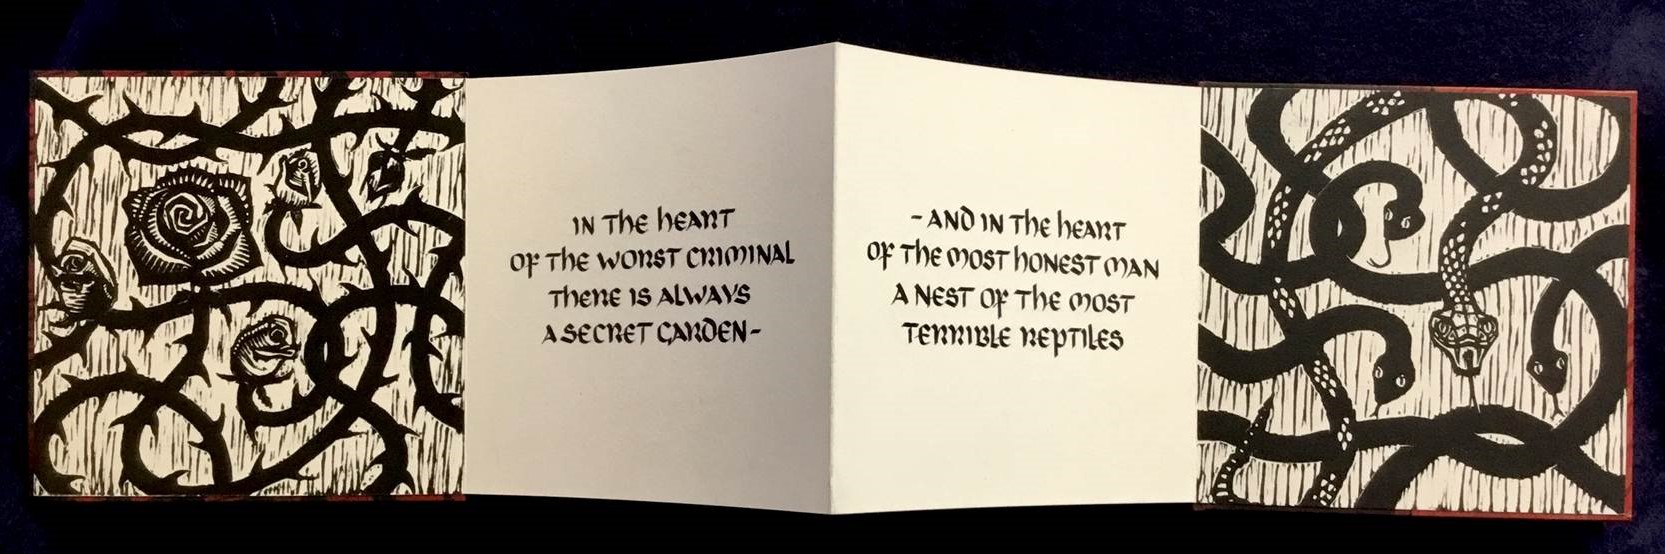 IN THE HEART
OF THE WORST CRIMINAL
THERE IS ALWAYS
A SECRET GARDEN-
- AND IN THE HEART
OF THE MOST HONEST MAN
A NEST OF THE MOST
TERRIBLE REPTILES